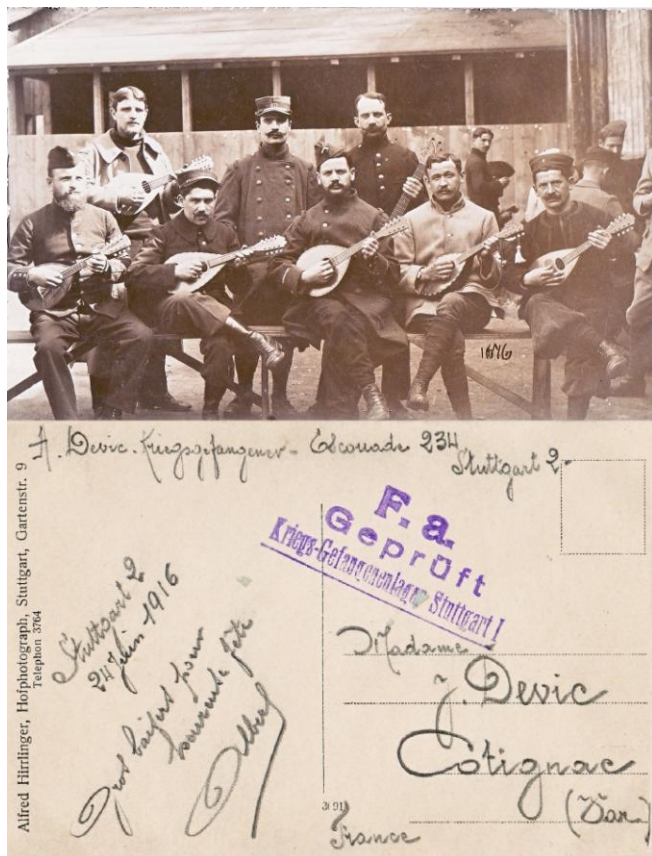 A. Devic. Kriegsgefangener - Escouade 234
Stuttgart 2-
Alfred Hirrlinger, Hofphotograph, Stuttgart, Gartenstr. 9
Telephon 3764
Stuttgart 2
24 Juin 1916
Gros baisers pour
fête
Albert
F. a.
Geprüft
Kriegs-Gefangenenlager Stuttgart I
Madame
J. Devic
Cotignac
(Var.)
France